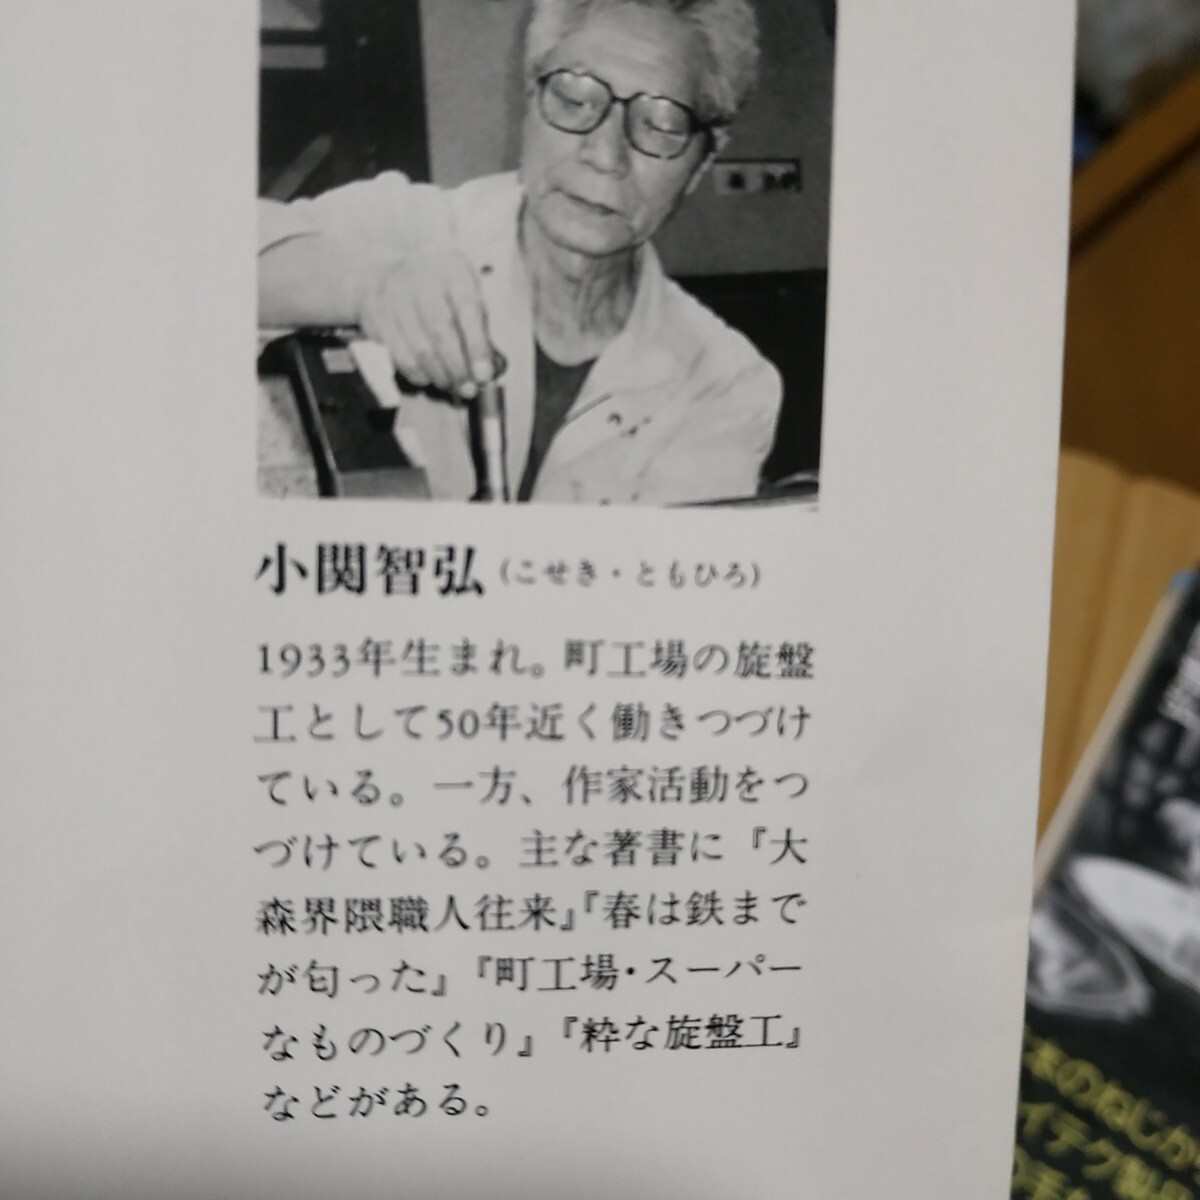 小関智弘(こせき・ともひろ)
1933年生まれ。町工場の旋盤
工として50年近く働きつづけ
ている。一方、作家活動をつ
づけている。主な著書に『大
森界隈職人往来』『春は鉄まで
が匂った』『町工場・スーパー
なものづくり』『粋な旋盤工』
などがある。
のねじか
イテク製